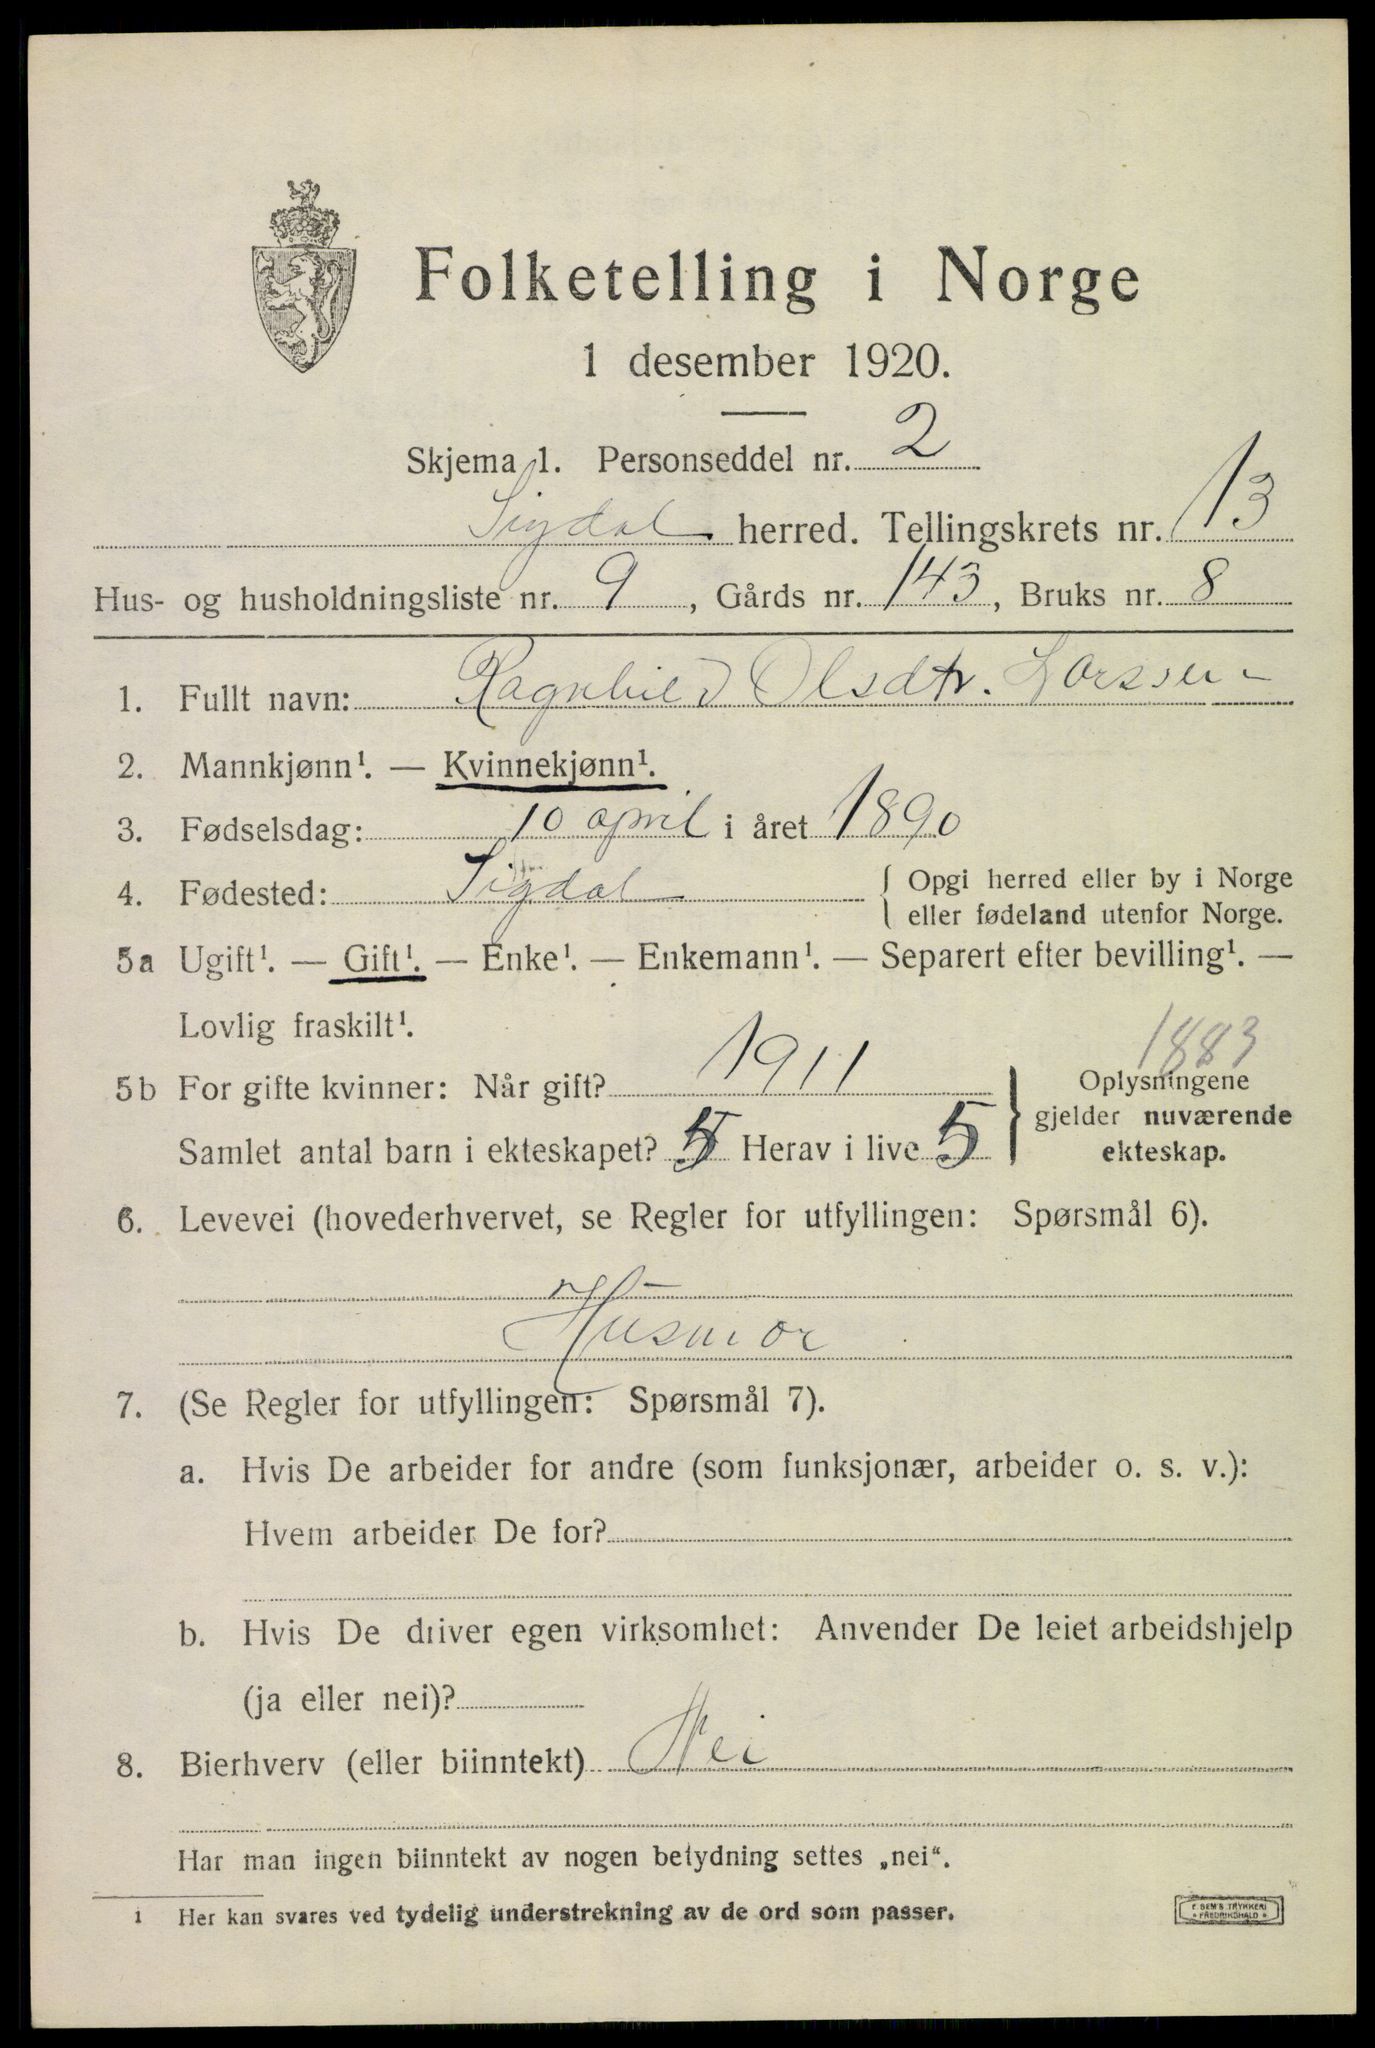 Folketelling i Norge
1 desember 1920.
Skjema 1. Personseddel nr. 2
Sigdal herred. Tellingskrets nr. 13
Hus- og husholdningsliste nr. 9, Gårds nr. 143, Bruks nr. 8
1. Fullt navn: Ragnhild Olsdtr. Larssen
2. Mannkjønn¹. — Kvinnekjønn¹.
3. Fødselsdag: 10 april i året 1890
4. Fødested: Sigdal { Opgi herred eller by i Norge
eller fødeland utenfor Norge.
5a Ugift¹. — Gift¹. — Enke¹. — Enkemann¹. — Separert efter bevilling¹. —
Lovlig fraskilt¹.
1883
5b For gifte kvinner: Når gift? 1911 } Oplysningene
gjelder nuværende
Samlet antal barn i ekteskapet? 5 Herav i live 5 ekteskap.
6. Levevei (hovederhvervet, se Regler for utfyllingen: Spørsmål 6).
Husmor
7. (Se Regler for utfyllingen: Spørsmål 7).
a. Hvis De arbeider for andre (som funksjonær, arbeider o. s. v.):
Hvem arbeider De for?
b. Hvis De driver egen virksomhet: Anvender De leiet arbeidshjelp
(ja eller nei)?
8. Bierhverv (eller biinntekt) Nei
Har man ingen biinntekt av nogen betydning settes „nei“.
1 Her kan svares ved tydelig understrekning av de ord som passer.
E. SEM'S TRYKKERI
* FREDRIKSHALD *